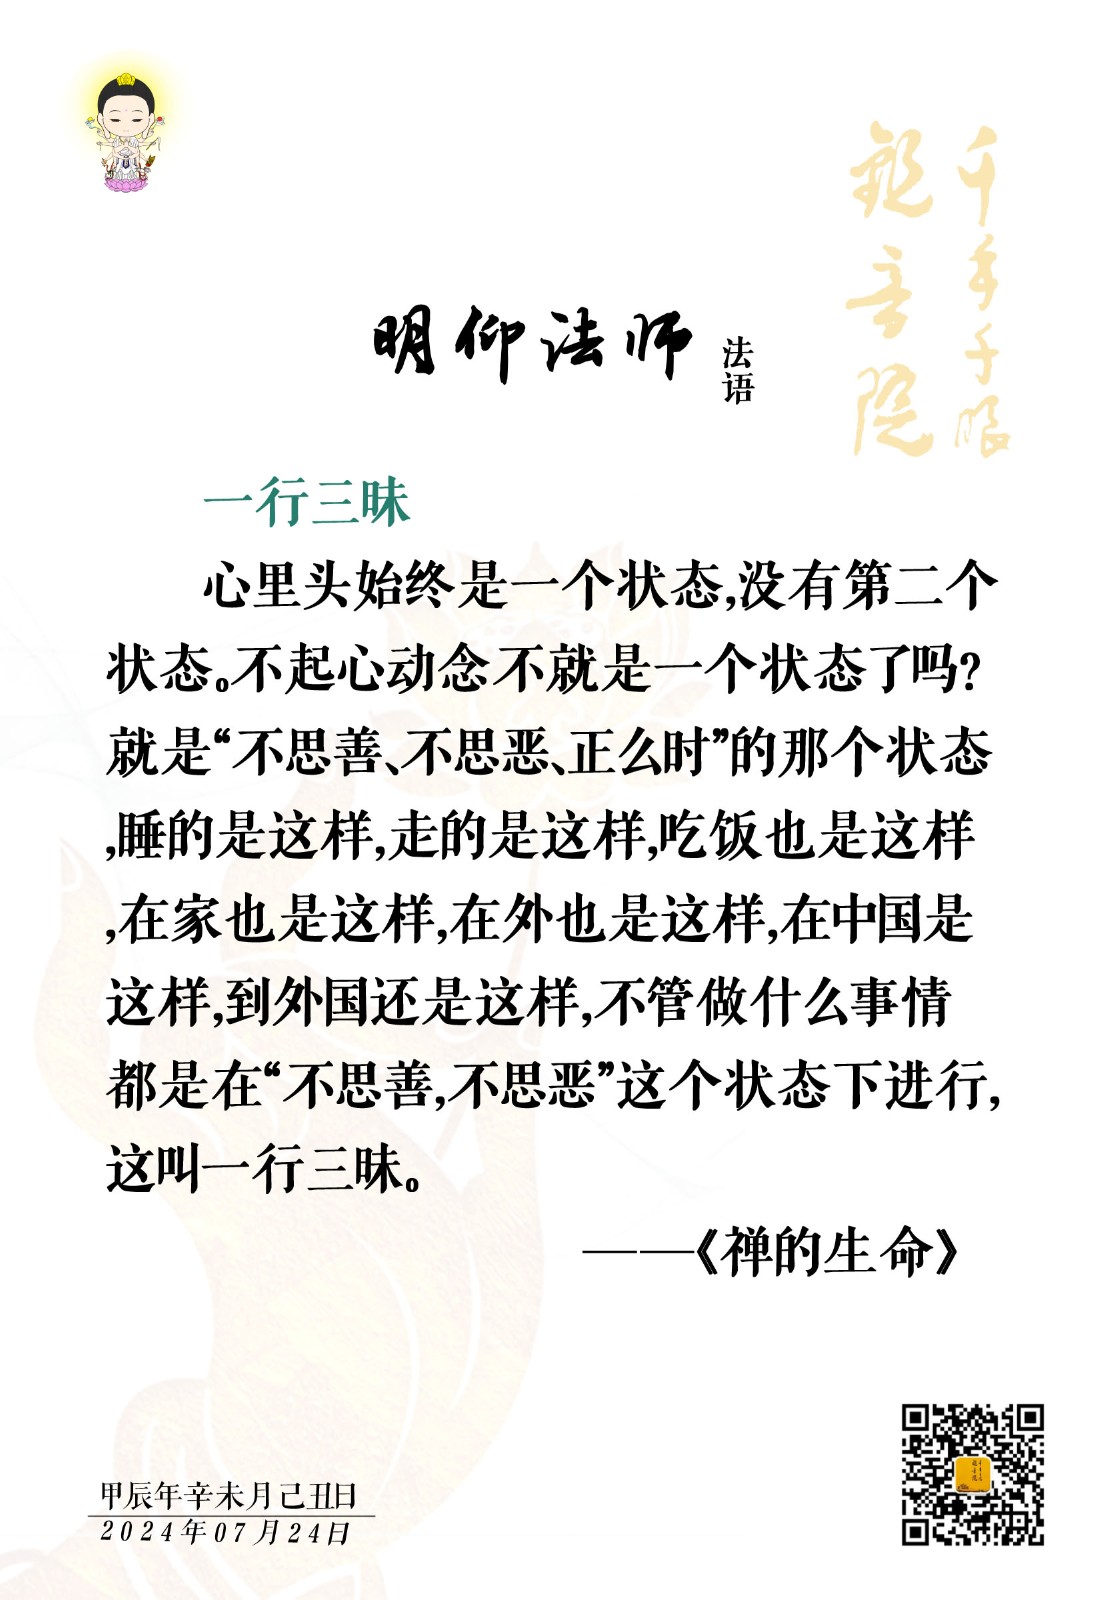 千手千眼
观音院
明仰法师
法语
一行三昧
心里头始终是一个状态,没有第二个
状态。不起心动念不就是一个状态了吗?
就是“不思善、不思恶、正么时”的那个状态
,睡的是这样,走的是这样,吃饭也是这样
,在家也是这样,在外也是这样,在中国是
这样,到外国还是这样,不管做什么事情
都是在“不思善,不思恶”这个状态下进行,
这叫一行三昧。
——《禅的生命》
甲辰年辛未月己丑日
2024年07月24日